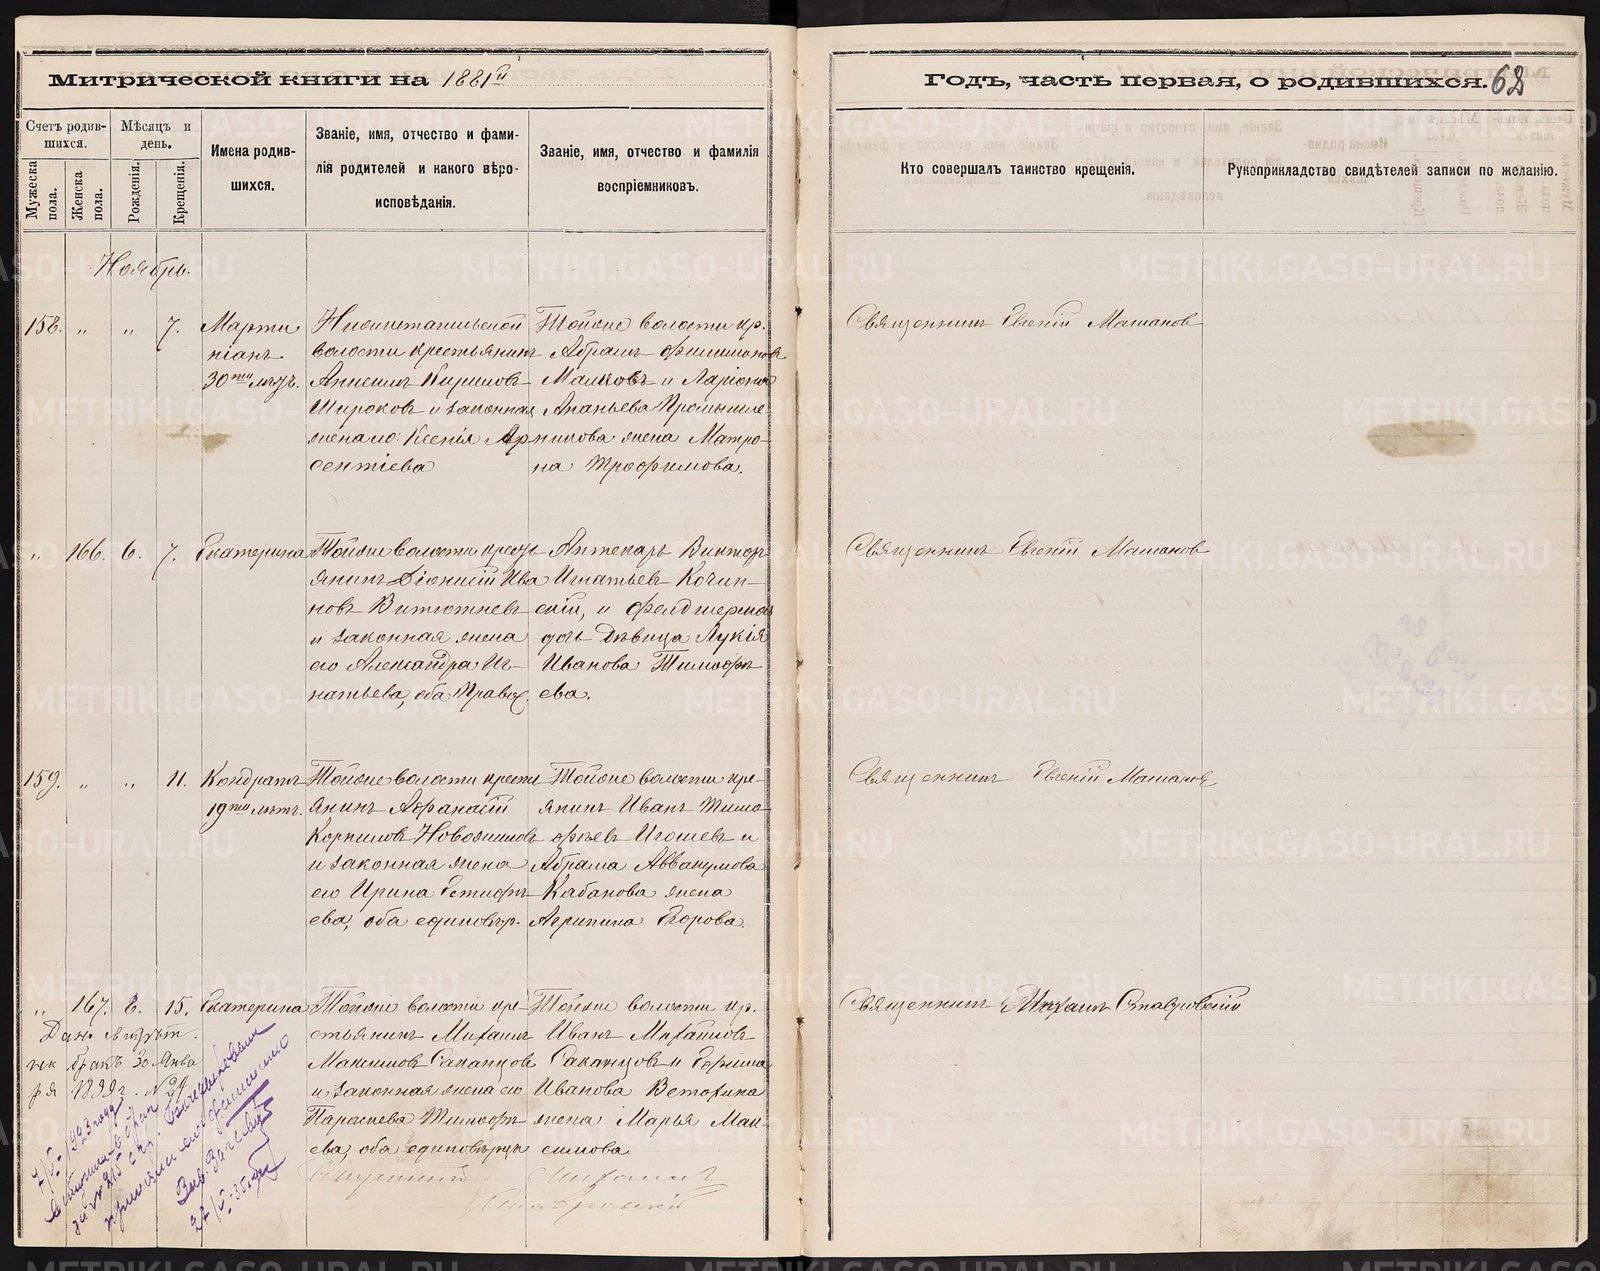 Митрической книги на 1881й
Годъ, часть первая, о родившихся. 62
Счетъ родив-
шихся.
Мужеска
пола.
Женска
пола.
Мѣсяцъ и
день.
Рожденія.
Крещенія.
Имена родив-
шихся.
Званіе, имя, отчество и фами-
лія родителей и какого вѣро-
исповѣданія.
Званіе, имя, отчество и фамилія
воспріемниковъ.
Кто совершалъ таинство крещенія.
Рукоприкладство свидѣтелей записи по желанію.
Ноябрь.
158. „ „ 7.
Марти
ніанъ
30ти лѣтъ.
волости крестьянинъ
Кириловъ
Широковъ и законная
жена его Ксенія Ар-
сентіева
Тойже волости кр.
Абрамъ Филимоновъ
Малковъ и Ларіона
Ананьева Промышле-
никова жена Матро-
на Трофимова.
Священникъ Евгеній Машановъ
„ 166. 6. 7.
Екатерина
Тойже волости кресть
янинъ Діонисій Ива
новъ Витютневъ
и законная жена
его Александра Иг-
натьева, оба Правос.
Аптекарь Викторъ
Игнатьевъ Кочин-
скій, и фелдшерска
дочь Дѣвица Лукія
Иванова Тимофѣ
ева.
Священникъ Евгеній Машановъ
159. „ „ 11.
Кондратъ
19ти лѣтъ.
Тойже волости кресть
янинъ Афанасій
Корниловъ Новожиловъ
и законная жена
его Ирина Естифѣ
ева, оба единовѣр.
Тойже волости кре-
янинъ Иванъ Тимо
фѣевъ Игошевъ и
Абрама Аввакумова
Кабанова жена
Агрипина Егорова.
Священникъ Евгеній Машановъ
„ 167. 8. 15.
Екатерина
Тойже волости кре-
стьянинъ Михаилъ
Максимовъ Саканцовъ
и законная жена его
Параскева Тимофѣ
ева, оба единовѣрца
Тойже волости кр.
Иванъ Михайловъ
Саканцовъ и Ермила
Иванова Ветохина
жена Марья Мак
симова.
Священникъ Михаилъ Ставровскій
бракъ 30 Янва
ря 1899г. №
1923 году
Михаилъ
Ставровскій
METRIKI.GASO-URAL.RU